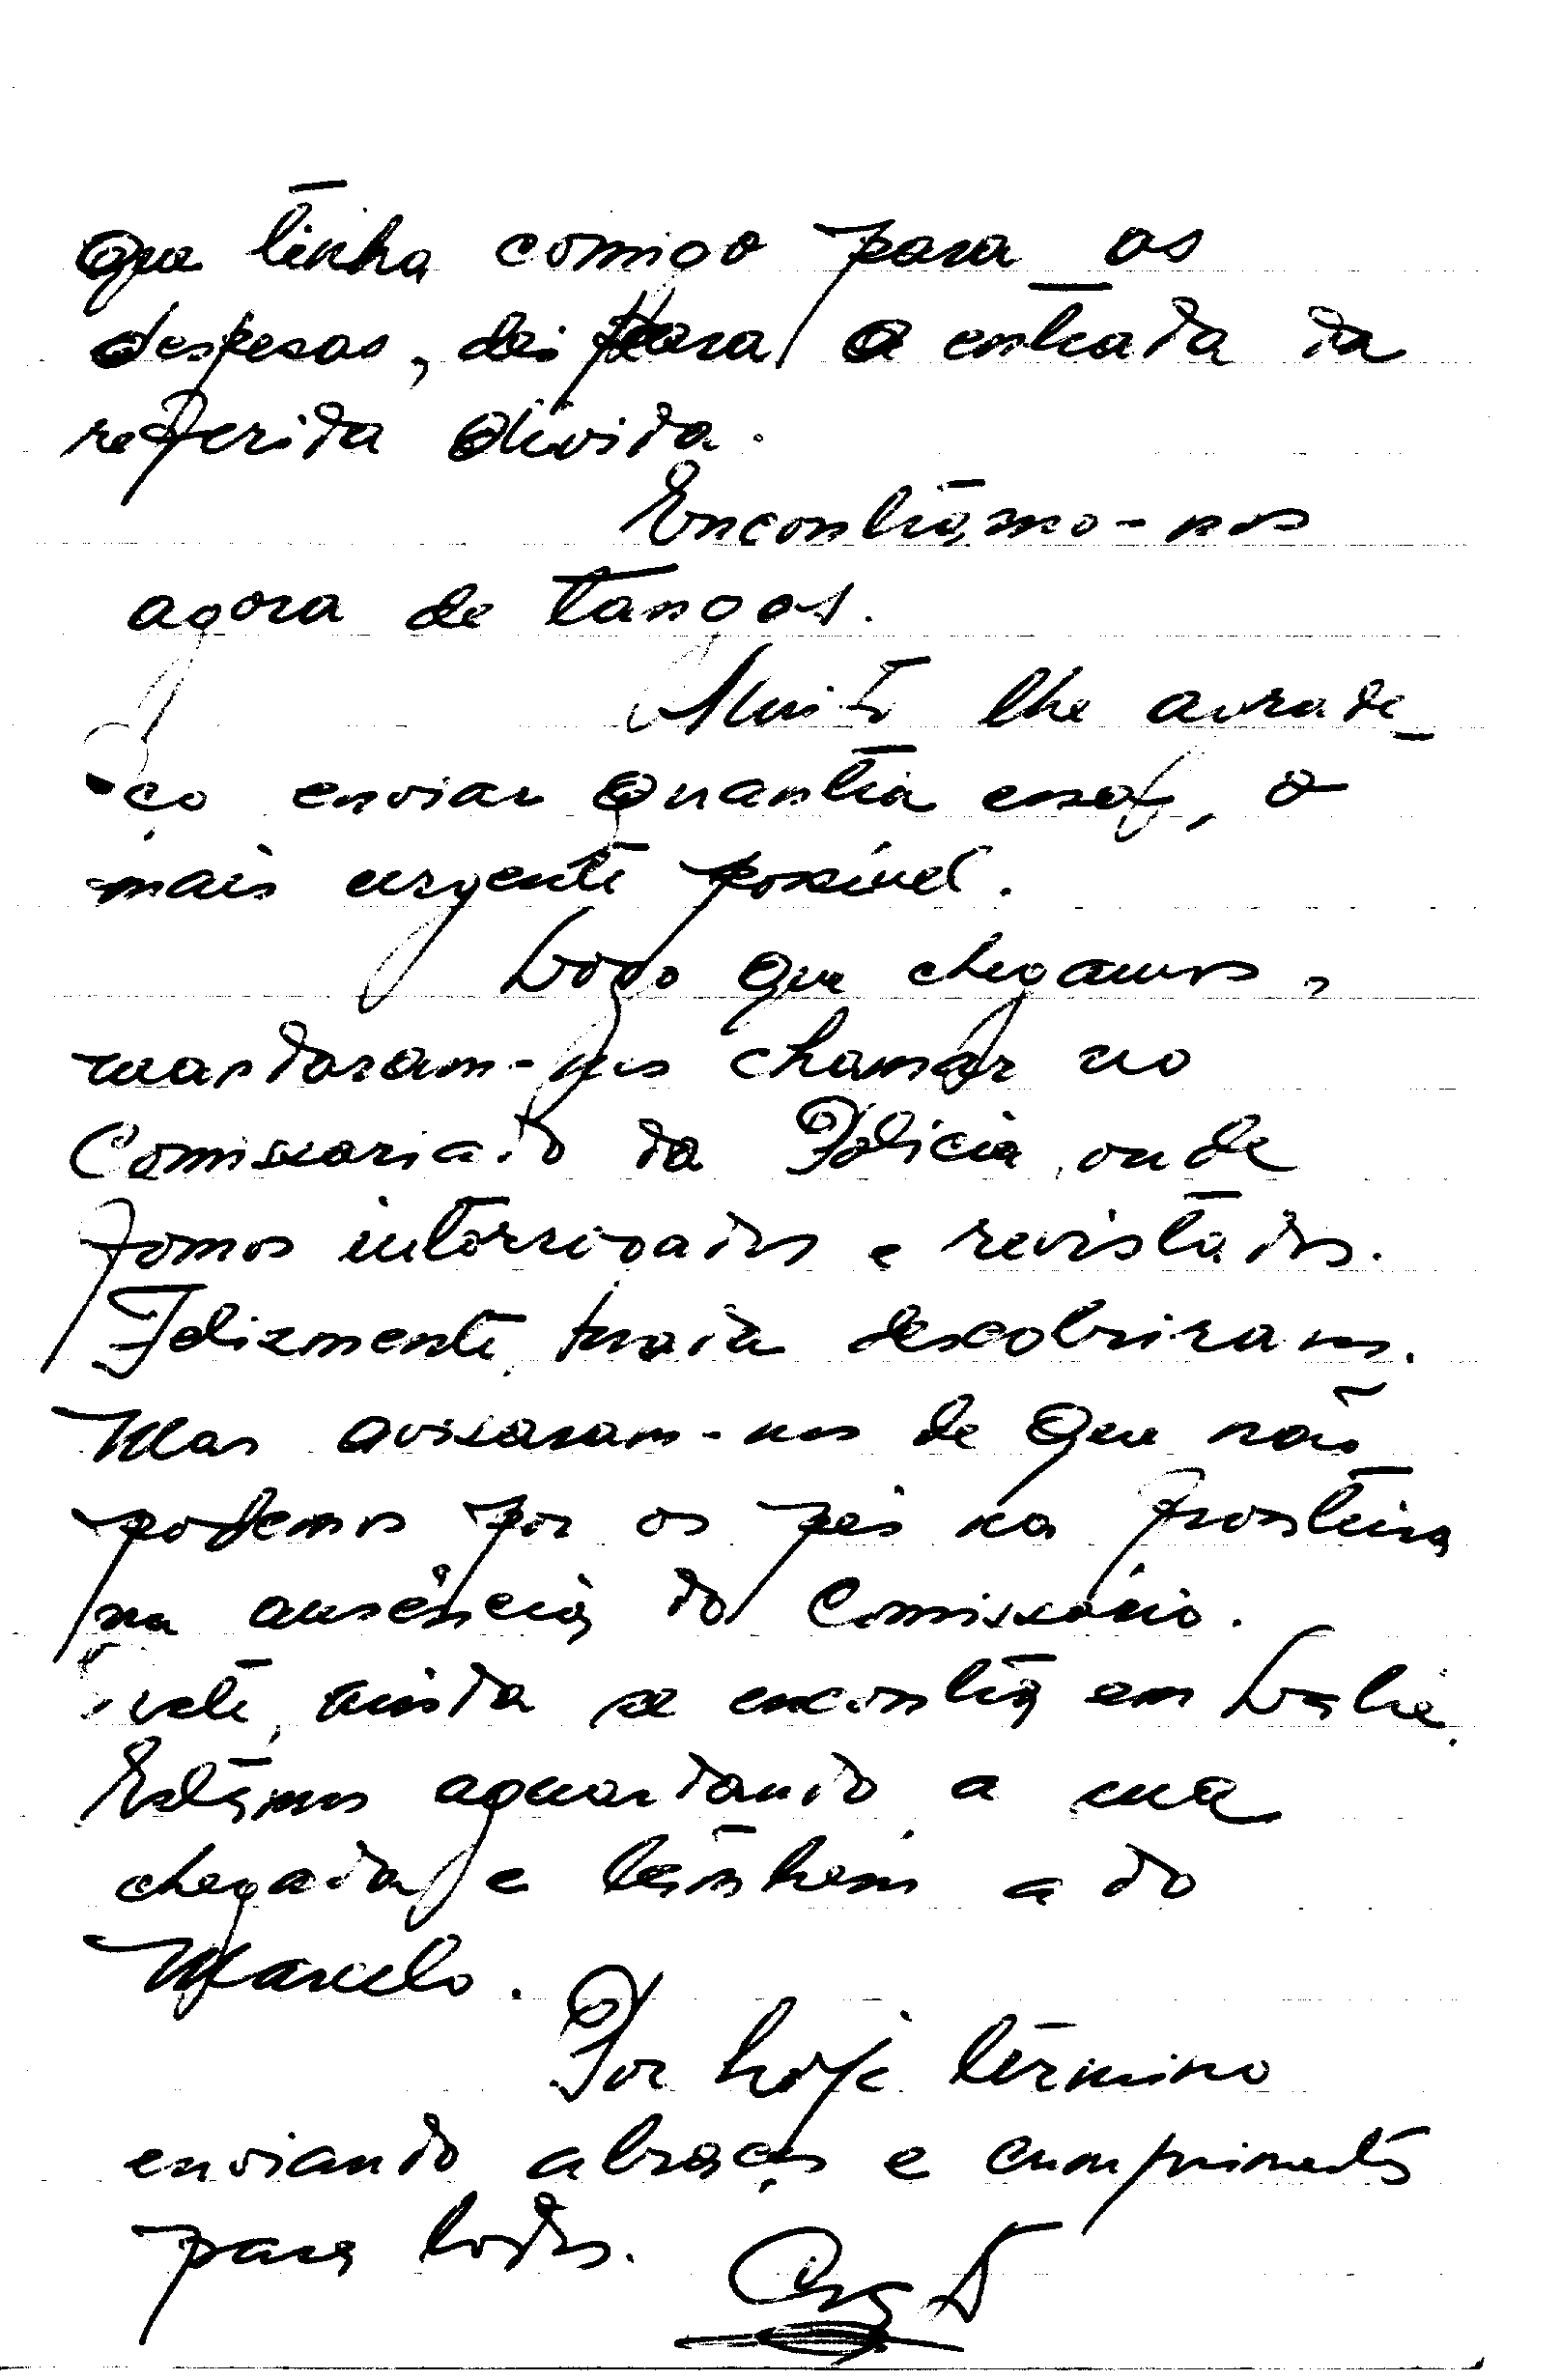 que tinha comigo para as
despesas, dei para a entrada da
referida dívida.
Encontrâmo-nos
agora de tangas.
Muito lhe agrade-
ço enviar quantia essa, o
mais urgente possível.
Logo que chegamos,
mandaram-nos chamar ao
Comissariado da Polícia, onde
fomos interrogados e revistados.
Felizmente, nada descobriram.
Mas avisaram-nos de que não
podemos por os pés na fronteira
na ausência do Comissário.
este, ainda se encontra em
Estâmos aguardando a sua
chegada e também a do
Marcelo.
Por hoje termino
enviando abraços e cumprimentos
para todos.